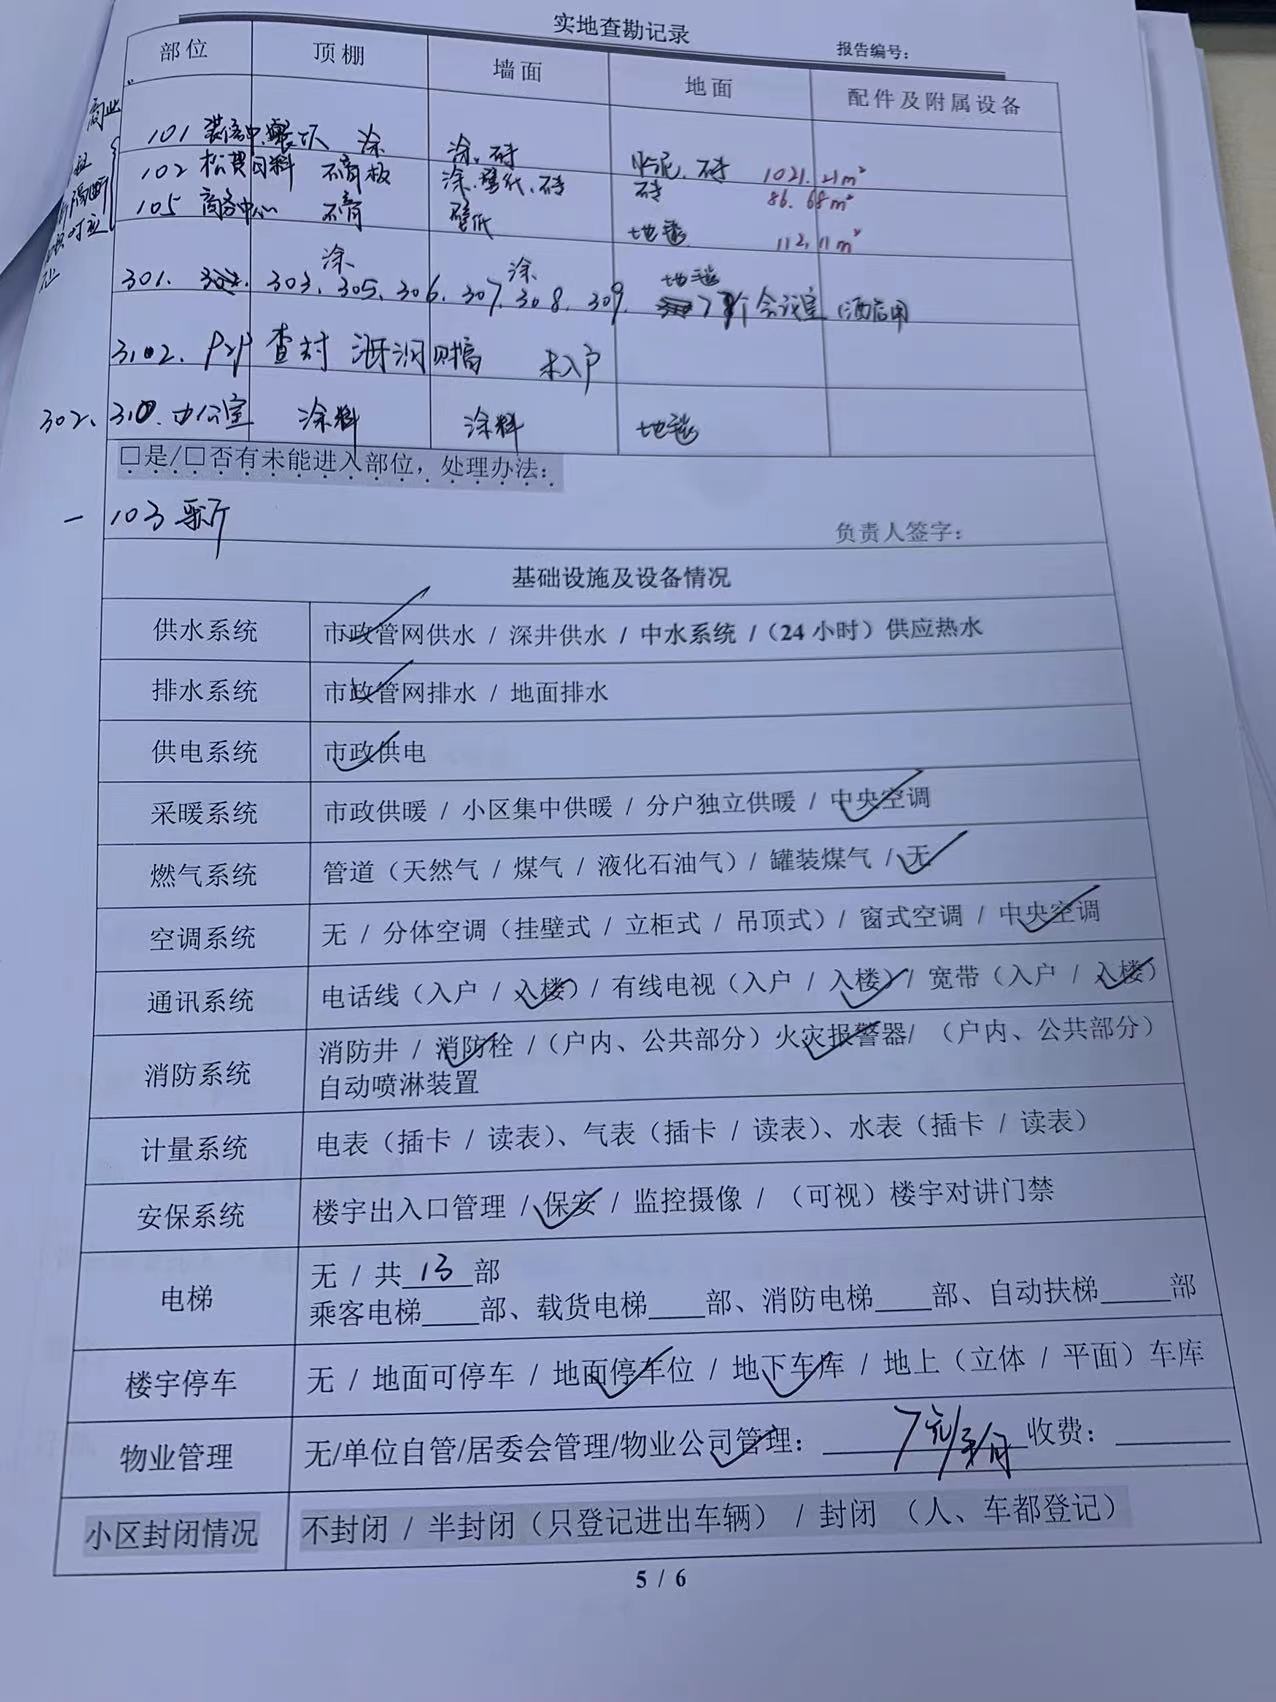 实地查勘记录
报告编号：
部位 顶棚 墙面 地面 配件及附属设备
商业
101 涂 涂、砖 水泥、砖 1021.21m²
102 石膏板 涂、壁纸、砖 砖 86.68m²
105 商务中心 石膏 壁纸 地毯 112.11m²
涂 涂 地毯
301. 303、305、306、307、308、309. 7个会议室
3102. P2P 查封 未入户
302、310. 办公室 涂料 涂料 地毯
□是/□否有未能进入部位，处理办法：
一 103
负责人签字：
基础设施及设备情况
供水系统 市政管网供水 / 深井供水 / 中水系统 /（24 小时）供应热水
排水系统 市政管网排水 / 地面排水
供电系统 市政供电
采暖系统 市政供暖 / 小区集中供暖 / 分户独立供暖 / 中央空调
燃气系统 管道（天然气 / 煤气 / 液化石油气）/ 罐装煤气 / 无
空调系统 无 / 分体空调（挂壁式 / 立柜式 / 吊顶式）/ 窗式空调 / 中央空调
通讯系统 电话线（入户 / 入楼）/ 有线电视（入户 / 入楼）/ 宽带（入户 / 入楼）
消防系统 消防井 / 消防栓 /（户内、公共部分）火灾报警器/ （户内、公共部分）
自动喷淋装置
计量系统 电表（插卡 / 读表）、气表（插卡 / 读表）、水表（插卡 / 读表）
安保系统 楼宇出入口管理 / 保安 / 监控摄像 / （可视）楼宇对讲门禁
电梯 无 / 共 13 部
乘客电梯____部、载货电梯____部、消防电梯____部、自动扶梯_____部
楼宇停车 无 / 地面可停车 / 地面停车位 / 地下车库 / 地上（立体 / 平面）车库
物业管理 无/单位自管/居委会管理/物业公司管理： 7元/平/月 收费：________
小区封闭情况 不封闭 / 半封闭（只登记进出车辆） / 封闭 （人、车都登记）
5 / 6